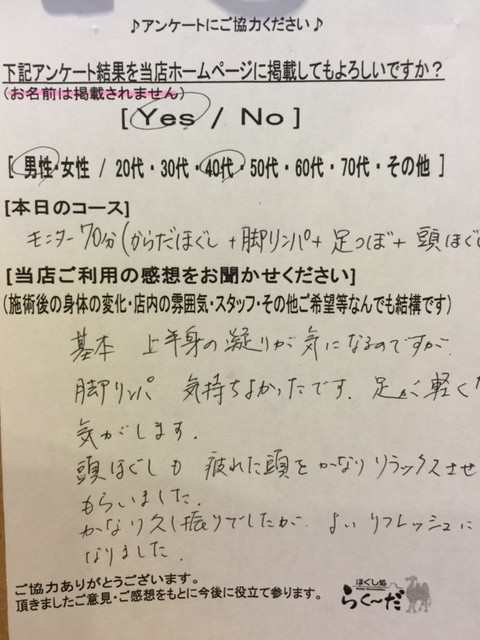 ♪アンケートにご協力ください♪
下記アンケート結果を当店ホームページに掲載してもよろしいですか？
(お名前は掲載されません)
[ Yes / No ]
[ 男性・女性 / 20代・30代・40代・50代・60代・70代・その他 ]
[本日のコース]
モニター70分(からだほぐし+脚リンパ+足つぼ+頭ほぐ
[当店ご利用の感想をお聞かせください]
(施術後の身体の変化・店内の雰囲気・スタッフ・その他ご希望等なんでも結構です)
基本 上半身の凝りが気になるのですが
脚リンパ 気持ちよかったです. 足が軽く
気がします.
頭ほぐしも 疲れた頭をかなりリラックスさせ
もらいました.
かなり久し振りでしたが. よいリフレッシュに
なりました.
ご協力ありがとうございます。
頂きましたご意見・ご感想をもとに今後に役立て参ります。
ほぐし処
らく〜だ